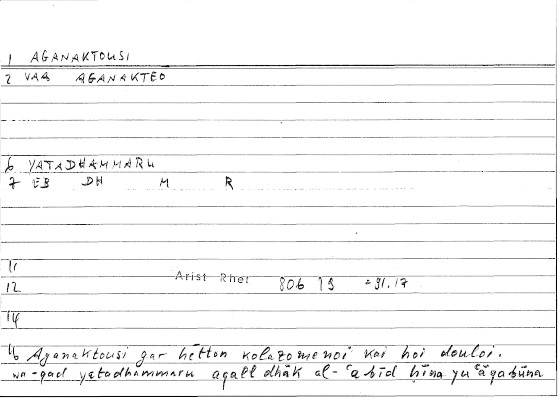 1 AGANAKTOUSI
2 VAA AGANAKTEO
6 YATADHAMMARU
7 EB DH M R
11
12 Arist Rhet 806 19 =91.17
14
16 Aganaktousi gar hētton kolazomenoi kai hoi douloi.
wa-qad yatadhammaru aqall dhāk al-ʿabīd ḥīna yuʿāqabūna